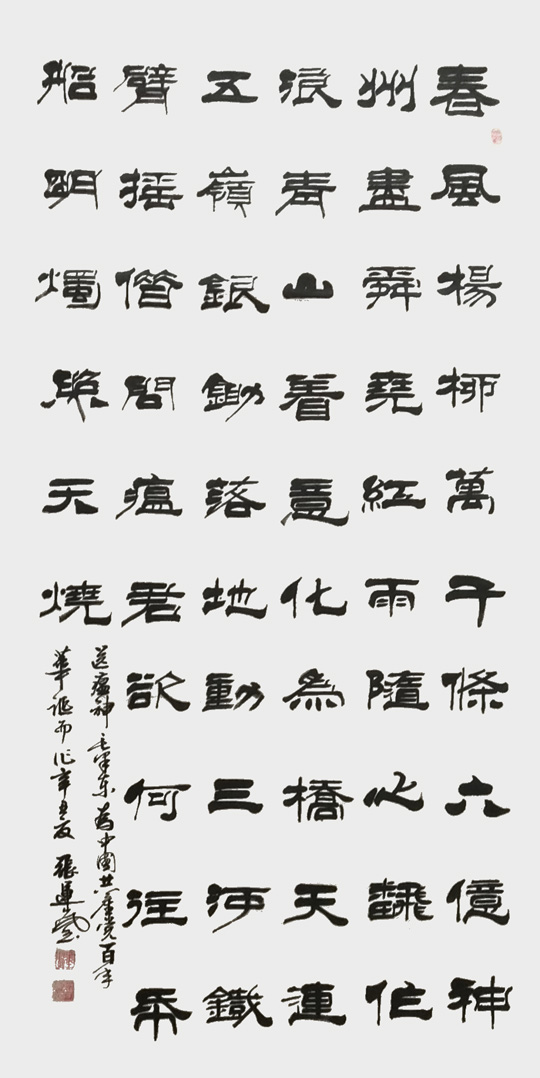 春風楊柳萬千條六億神
州盡舜堯紅雨隨心翻作
浪青山着意化為橋天連
五嶺銀鋤落地動三河鐵
臂搖借問瘟君欲何往帋
船明燭照天燒
送瘟神毛澤東為中國共產黨百年
華誕而作辛丑夏 張運